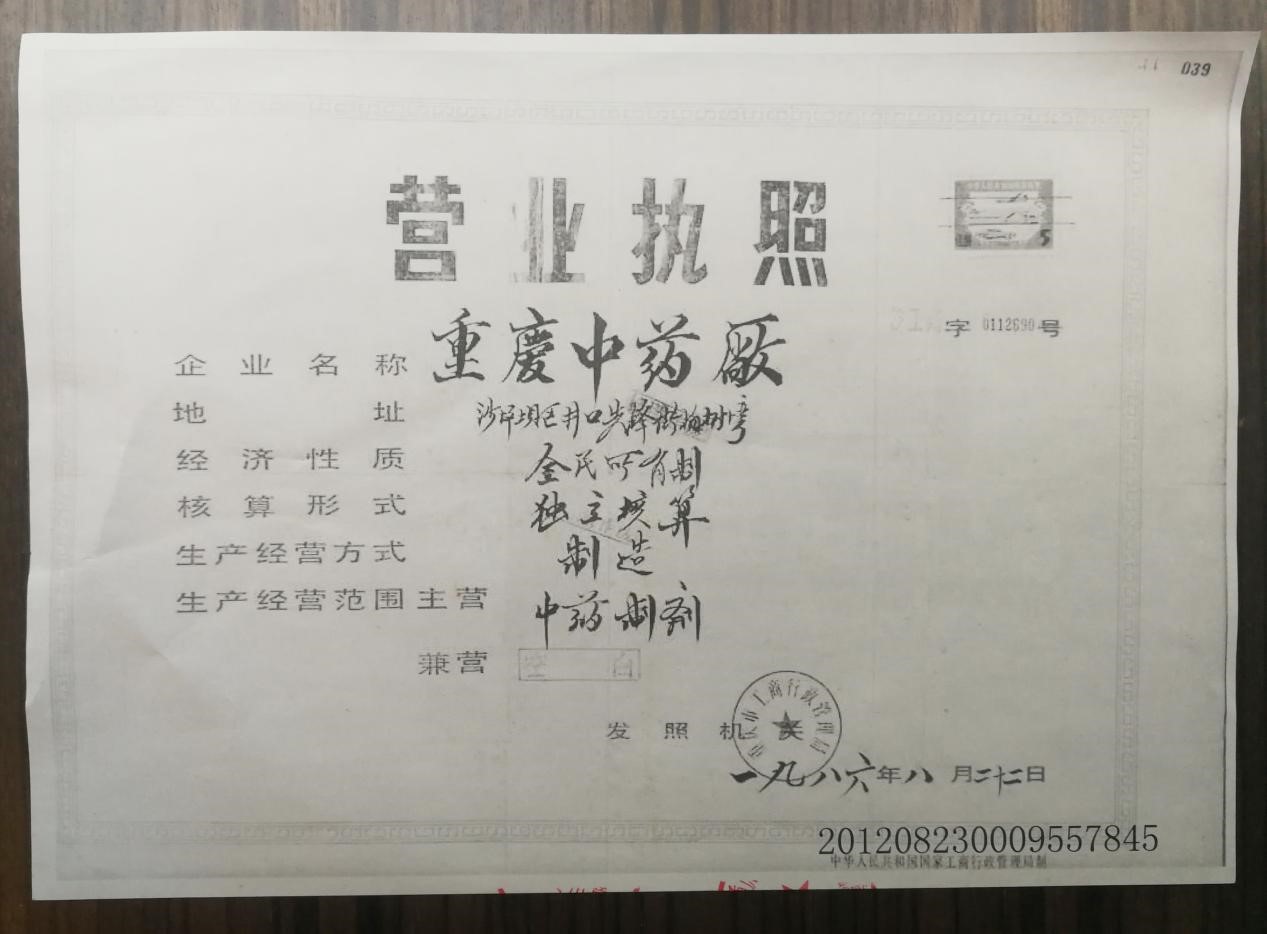 039
营业执照
字 0112690 号
企业名称 重慶中药廠
地址 沙坪坝区井口先锋街柏树弯
经济性质 全民所有制
核算形式 独立核算
生产经营方式 制造
生产经营范围 主营 中药制剂
兼营 空白
发照机关
重庆市工商行政管理局
一九八六年八月二十二日
201208230009557845
中华人民共和国国家工商行政管理局制